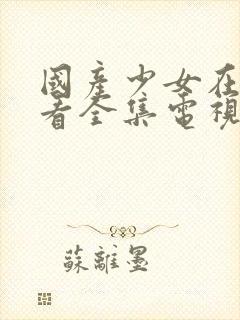 國產少女在
看全集電視
蘇離墨